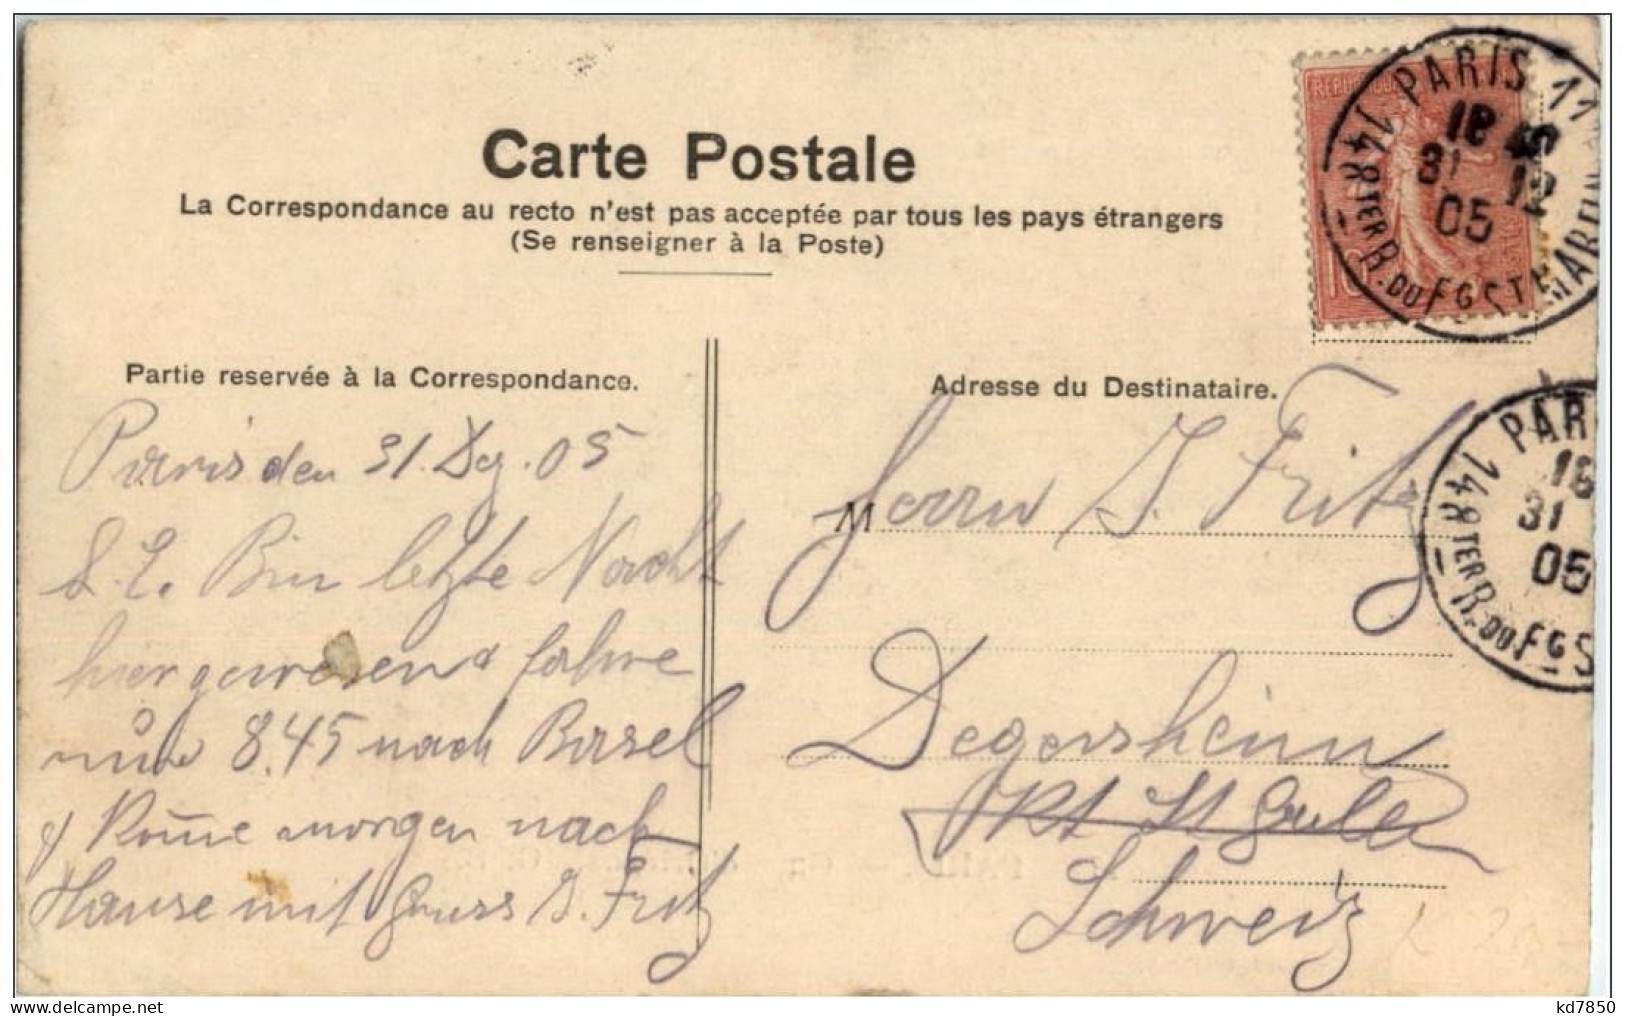 Carte Postale
La Correspondance au recto n'est pas acceptée par tous les pays étrangers
(Se renseigner à la Poste)
PARIS 11
18 40
31 12
05
148 TER R. DU FG ST MARTIN
REPUBLIQUE
10
Partie reservée à la Correspondance.
Paris den 31. Dez. 05
S. E. Bin letzte Nacht
hier gewesen & fahre
nun 8.45 nach Basel
& komme morgen nach
Hause mit Gruss J. Fritz
Adresse du Destinataire.
M Herrn J. Fritz
Degersheim
Kt St Gallen
Schweiz
PARI
18
31
05
148 TER R. DU FG S
kd7850